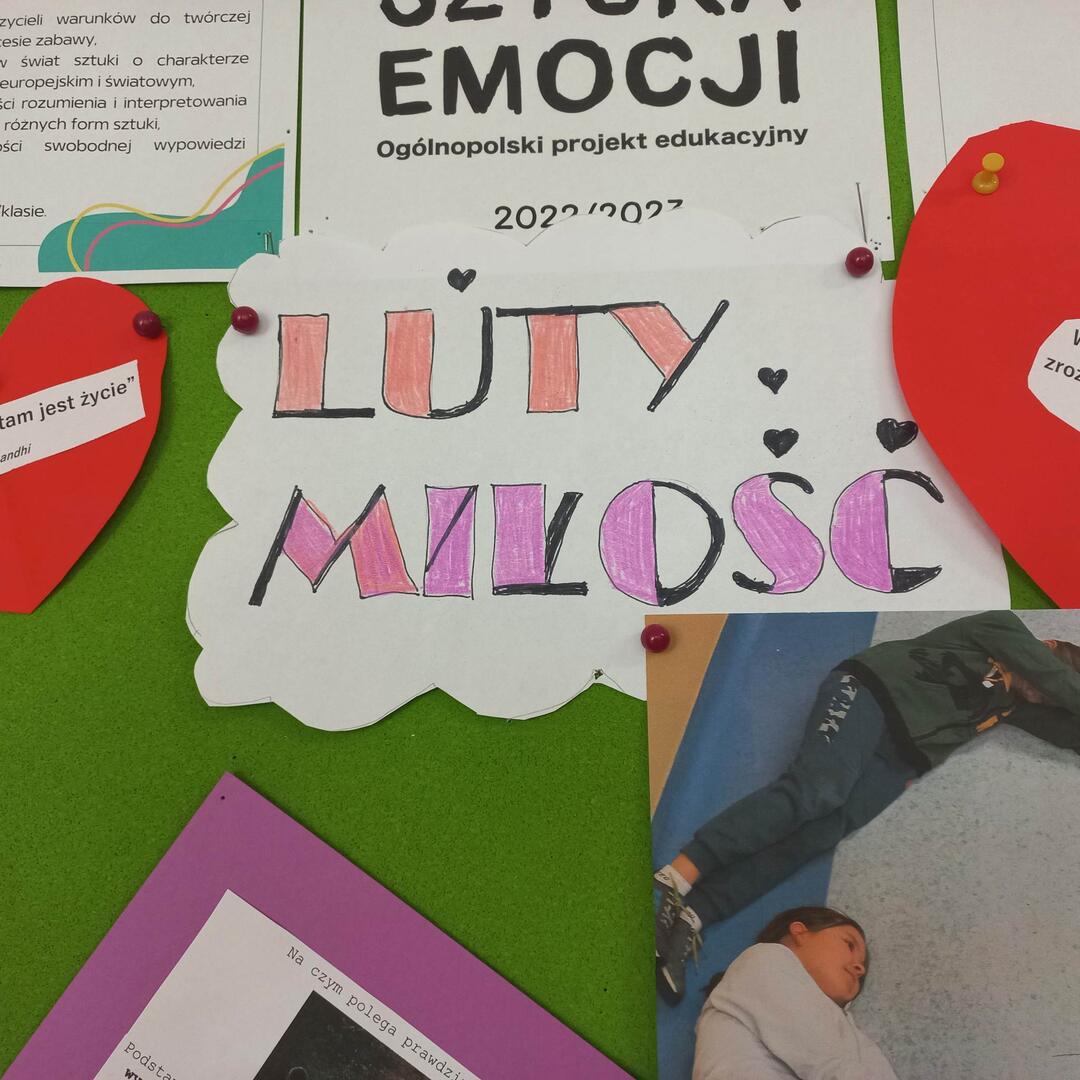 zycieli warunków do twórczej
cesie zabawy,
w świat sztuki o charakterze
europejskim i światowym,
ści rozumienia i interpretowania
różnych form sztuki,
ości swobodnej wypowiedzi
klasie.
SZTUKA
EMOCJI
Ogólnopolski projekt edukacyjny
2022/2023
LUTY
MIŁOŚĆ
tam jest życie”
andhi
W
zroz
Na czym polega prawdzi
Podsta